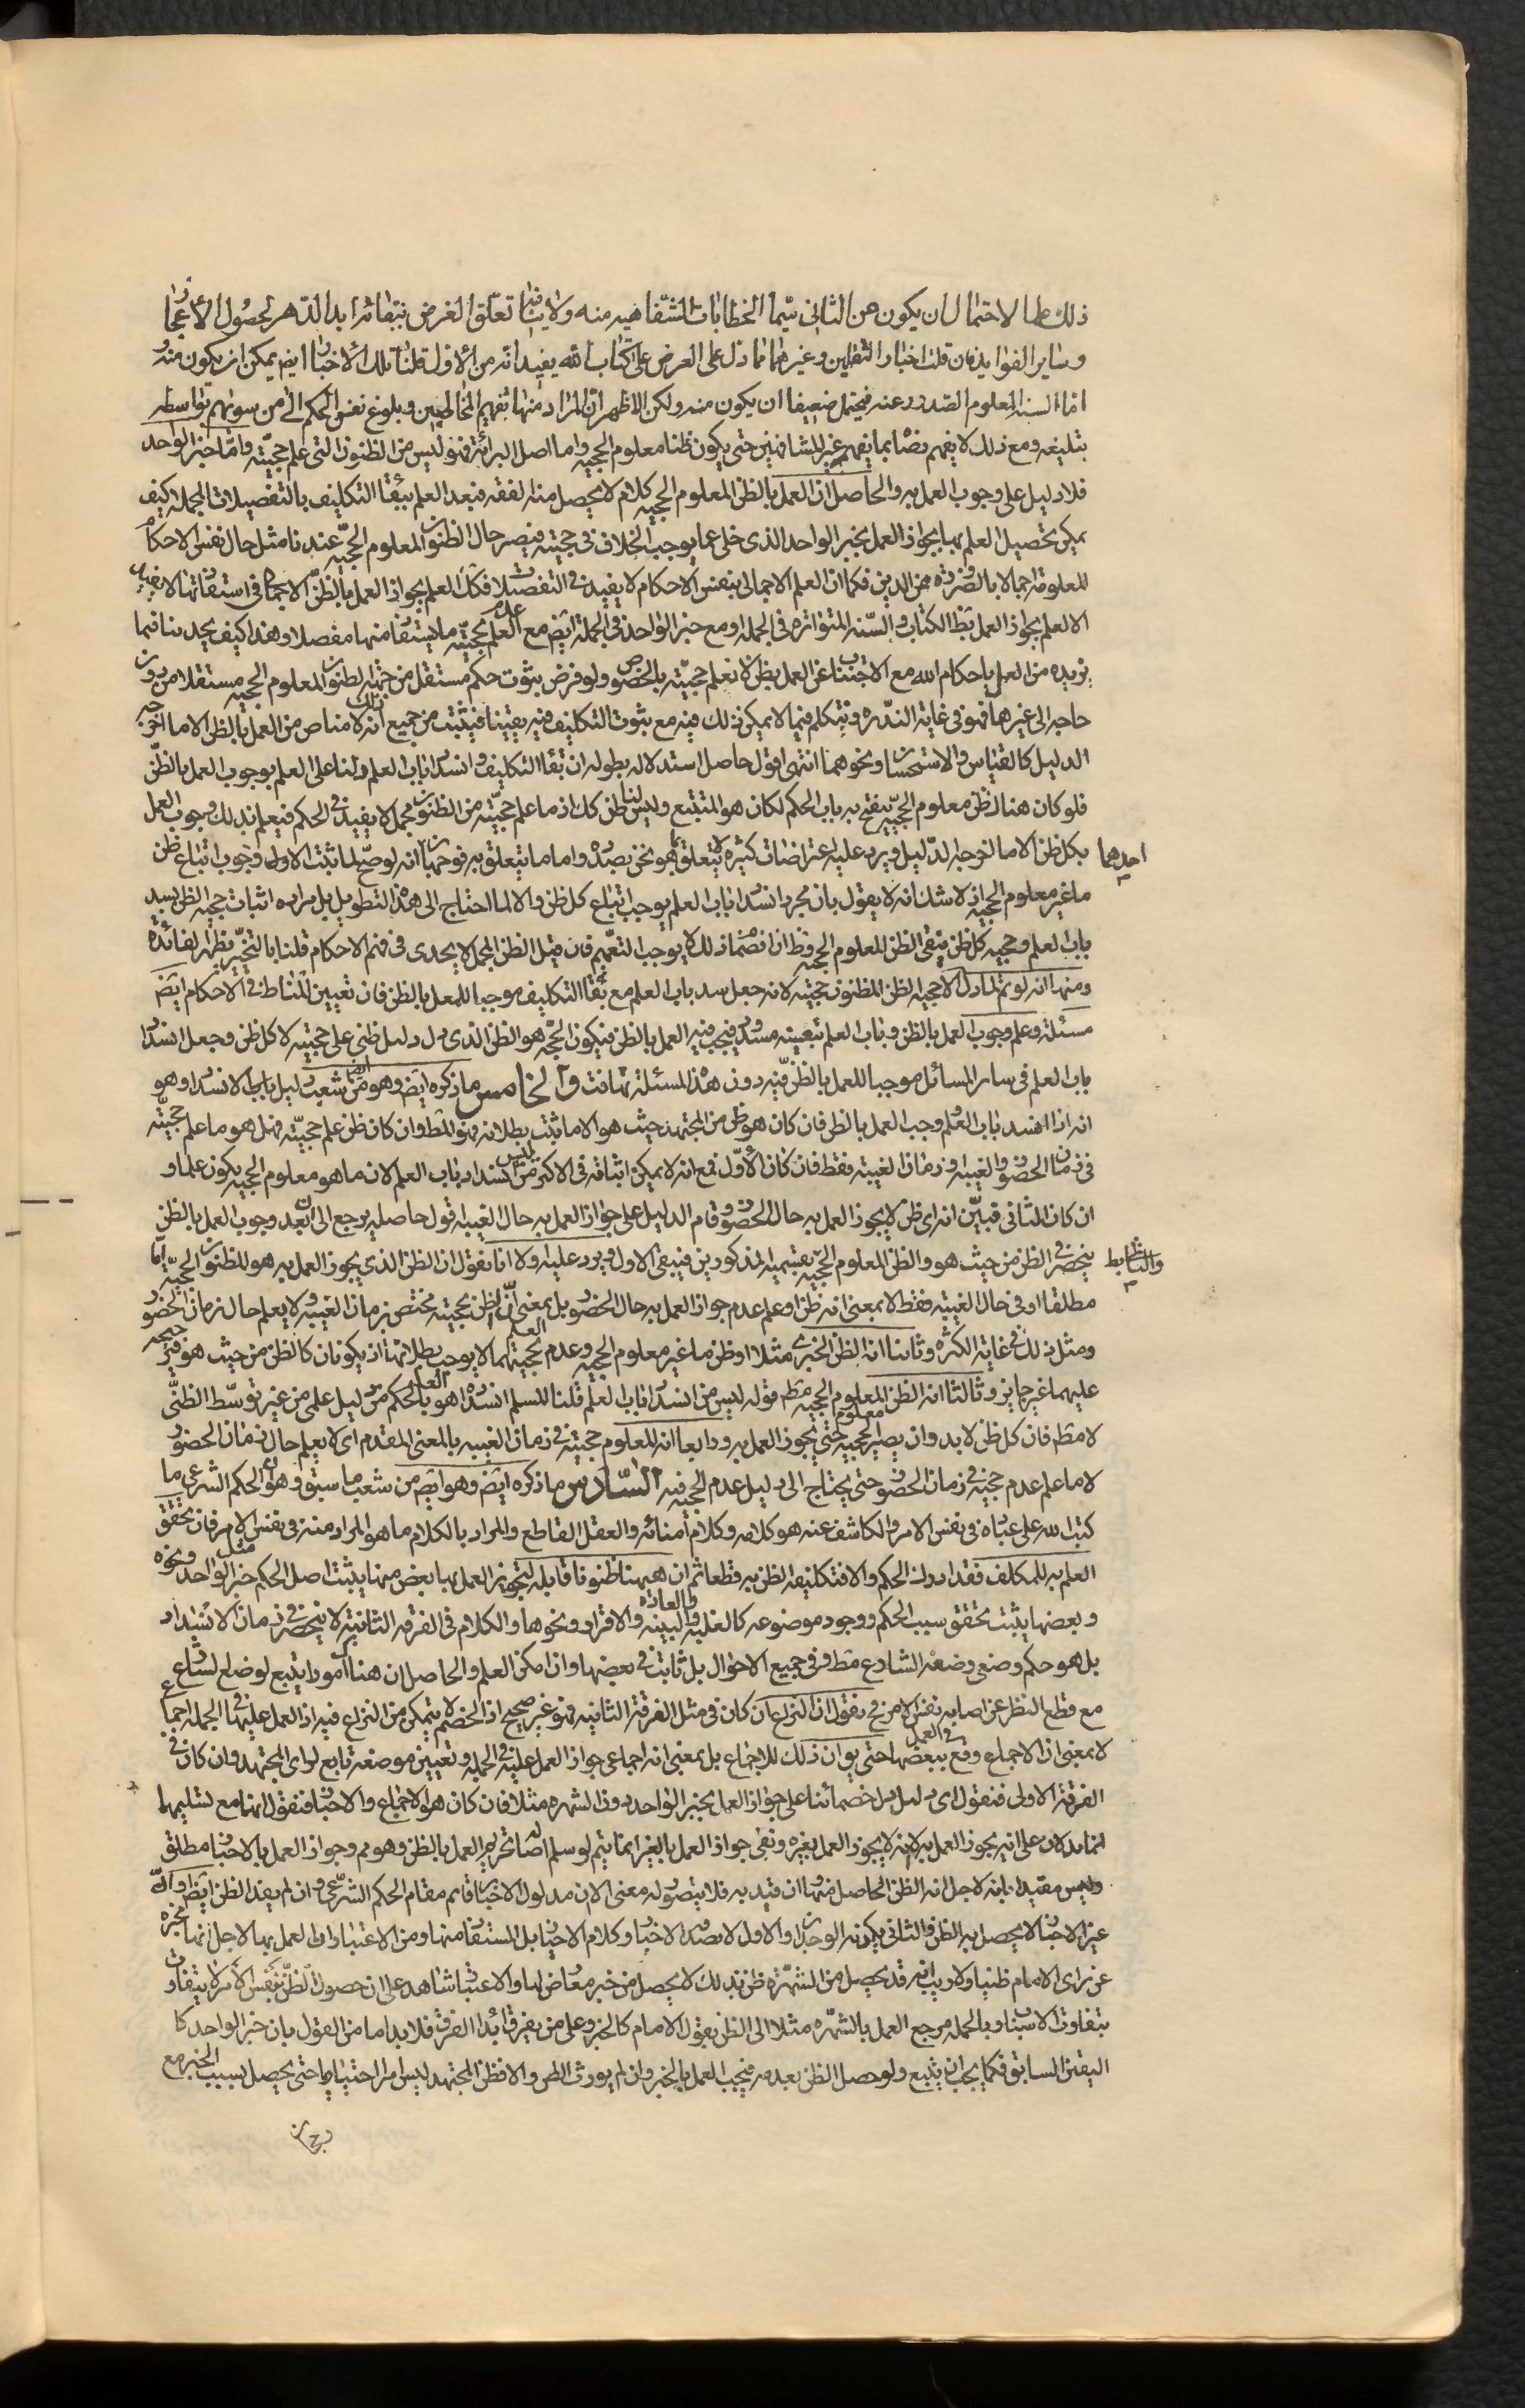 ذلك علما لاحتمال ان يكون من الثانى سيما الخطابات الشفاهيه منه ولا ينافى تعلق الغرض ببقائه ابد الدهر لحصول الاعجاز
وساير الفوايد فان قلت اخبار الثقلين وغيرها مما دل على العرض على كتاب الله يفيد انه من الاول قلنا تلك الاخبار ايضا يمكن ان يكون منه
اما السنه المعلوم الصدور عنه فيحتمل ضعيفا ان يكون منه ولكن الاظهر ان المراد منها تفهيم المخاطبين وبلوغ نفس الحكم الى من سويهم بواسطه
تبليغه ومع ذلك لا يفهم رضائه بما يفهم غير المشافهين حتى يكون ظنا معلوم الحجيه واما اصل البرائة فهو ليس من الظنون التى علم حجيته واما خبر الواحد
فلا دليل على وجوب العمل به والحاصل ان العمل بالظن المعلوم الحجيه كلام لا يحصل منه الفقه فبعد العلم ببقاء التكليف بالتفصيلات المجمله كيف
يمكن تحصيل العلم بها بجواز العمل بخبر الواحد الذى خلى عما يوجب الخلاف فى حجيته فيصير حال الظنون المعلوم الحجيه عندنا مثل حال نفس الاحكام
المعلومة اجمالا بالضرورة من الدين فكما ان العلم الاجمالى بنفس الاحكام لا يفيد فى التفصيلا فكك العلم بجواز العمل بالظن الاجمالى فى استفادتها لا يفيد
الا العلم بجواز العمل بظ الكتاب والسنه المتواتره فى الجمله او مع خبر الواحد فى الجملة ايض مع عدم العلم بحجيته ما يستفا منها مفصلا وهذا كيف يجدينا فيما
نريده من العلم باحكام الله مع الاجتناب عن العمل بظن لا نعلم حجيته بالخصوص ولو فرض ثبوت حكم مستقل من جهة الظنون المعلوم الحجيه مستقلا من دون
حاجه الى غيرها فهو فى غايه الندره ونتكلم فيما لا يمكن ذلك فيه مع ثبوت التكليف فيه يقينا فيثبت من جميع ذلك انه لا مناص من العمل بالظن الا ما اخرجه
الدليل كالقياس والاستحسان ونحوهما انتهى اقول حاصل استدلاله بطوله ان بقاء التكليف وانسداد باب العلم دلنا على العلم بوجوب العمل بالظن
فلو كان هنا ظن معلوم الحجيه ينفتح به باب الحكم لكان هو المتبع وليس لنا ظن كك اذ ما علم حجيته من الظنون مجمل لا يفيد فى الحكم فيعلم بذلك وجوب العمل
بكل ظن الا ما اخرجه الدليل ويرد عليه اعتراضات كثيره لا يتعلق بما هو نحن بصدده واما ما يتعلق به فوجهان احدهما انه لو صح لما ثبت الاول وجوب اتباع ظن
ما غير معلوم الحجيه اذ لا شك انه لا يقول بان مجرد انسداد باب العلم يوجب اتباع كل ظن والا لما احتاج الى هذا التطويل بل مراده اثبات حجيه الظن بسد
باب العلم وحجيه كل ظن بنفى الظن المعلوم الحجيه وظ ان انضمام ذلك لا يوجب التعميم فان قيل الظن المجمل لا يجدى فى فهم الاحكام قلنا بالتخيير يظهر الفائدة
ومنها انه لو تم لما دل الا حجيه الظن المظنون حجيته لانه جعل سد باب العلم مع بقاء التكليف موجبا للعمل بالظن فان تعيين المناط فى الاحكام ايض
مسئلة وعلم وجوب العمل بالظن وباب العلم بتعيينه مسدود فيجب فيه العمل بالظن فيكون الحجه هو الظن الذى دل دليل ظنى على حجيته لا كل ظن وجعل انسداد
باب العلم فى ساير المسائل موجبا للعمل بالظن فيه دون هذه المسئلة تهافت والخامس ما ذكره ايض وهو ايضا من شعب دليل باب الانسداد وهو
انه اذا انسد باب العلم وجب العمل بالظن فان كان هو ظن من المجتهد حيث هو الا ما ثبت بطلانه فهو المط وان كان ظن علم حجيته فهل هو ما علم حجيته
فى زمان الحضور والغيبه او زمان الغيبه فقط فان كان الاول فمع انه لا يمكن اثباته فى الاكثر ليس من انسداد باب العلم لان ما هو معلوم الحجيه يكون علما و
ان كان الثانى فبين انه اى ظن لا يجوز العمل به حال الحضور وقام الدليل على جواز العمل به حال الغيبه اقول حاصله يرجع الى ان بعد وجوب العمل بالظن
ينحصر الظن من حيث هو والظن المعلوم الحجيه بقسميه المذكورين فينفى الاول ويرد عليه اولا انا نقول ان الظن الذى يجوز العمل به هو المظنون الحجيه اما
مطلقا او فى حال الغيبه فقط لا بمعنى انه ظن او علم عدم جواز العمل به حال الحضور بل بمعنى ان الظن بحجيته مختص بزمان الغيبه ولا يعلم حال زمان الحضور
ومثل ذلك فى غاية الكثره وثانيا انه الظن الخبرى مثلا او ظن ما غير معلوم الحجيه وعدم العلم بحجيتهما لا يوجب بطلانهما اذ يكونان كالظن من حيث هو
عليهما غير جايز وثالثا انه الظن المعلوم الحجيه مط قوله ليس من انسداد باب العلم قلنا المسلم انسداد العلم هو بالحكم من دليل علمى من غير توسط الظنى
لا مط فان كل ظن لا بد وان يصير معلوم الحجيه حتى يجوز العمل به ورابعا انه المعلوم حجيته فى زمان الغيبه بالمعنى المقدم اى لا يعلم حال زمان الحضور
لا ما علم عدم حجيته فى زمان الحضور حتى يحتاج الى دليل عدم الحجيه فيه السادس ما ذكره ايض وهو ايض من شعب ما سبق وهو ان الحكم الشرعى ما
كتب الله على عباده فى نفس الامر والكاشف عنه هو كلامه وكلام امنائه والعقل القاطع والمراد بالكلام ما هو المراد منه فى نفس الامر فان تحقق
العلم به للمكلف فقد ادرك الحكم والا فتكليفه الظن به قطعا ثم ان ههنا ظنونا قابله لتجويز العمل بها بعض منها يثبت اصل الحكم مثل خبر الواحد ونحوه
وبعضها يثبت تحقق سبب الحكم ووجود موضوعه كالغلبه والعادة والبينه والاقرار ونحوها والكلام فى الفرقه الثانية لا ينحصر فى زمان الانسداد
بل هو حكم وضعى وضعه الشارع مط وفى جميع الاحوال بل ثابت فى بعضها وان امكن العلم والحاصل ان هنا امورا يتبع لوضع الشارع
مع قطع النظر عن اصابه نفس الامر فح نقول ان النزاع ان كان فى مثل الفرقة الثانيه فهو غير صحيح اذ الخصم لا يتمكن من النزاع فيه اذ العمل عليها فى الجمله اجماعى
لا بمعنى ان الاجماع وقع فى العمل ببعضها حتى يق ان ذلك للاجماع بل بمعنى انه اجماعى جواز العمل عليه فى الجمله وتعيين موضعه تابع لراى المجتهد وان كان فى
الفرقة الاولى فنقول اى دليل دل خصمائنا على جواز العمل بخبر الواحد دون الشهره مثلا فان كان هو الاجماع والاخبار فنقول انهما مع تسليمهما
انما يدلان على انه يجوز العمل به لا انه لا يجوز العمل بغيره ونفى جواز العمل بالغير انما يتم لو سلم اصالة تحريم العمل بالظن وهو مم وجواز العمل بالاخبار مطلق
وليس مقيدا بانه لاجل انه الظن الحاصل منها وان قيد به فلا يتصور له معنى الا ان مدلول الاخبار قائم مقام الحكم الشرعى وان لم يفد الظن ايضا او ان
غير الاخبار لا يحصل به الظن والثانى يكذبه الوجدان والاول لا بصدد الاخبار وكلام الاخبار بل المستفا منها ومن الاعتبار ان العمل بها لاجل انها مخبره
عن راى الامام ظنيا ولا ريب انه قد يحصل من الشهرة ظن بذلك لا يحصل من خبر معارض لها والاعتبار شاهد على ان حصول الظن بنفس الامر لا يتفاوت
بتفاوت الاسباب وبالجمله مرجع العمل بالشهره مثلا الى الظن بقول الامام كالخبر وعلى من يفرق ابداء الفرق فلا بد اما من القول بان خبر الواحد كا
اليقين السابق فكما يجب ان يتبع ولو حصل الظن بعدمه فيجب العمل بالخبر وان لم يورث الظن والا فظن المجتهد ليس امرا اختياريا حتى يحصل بسبب الخبر مع